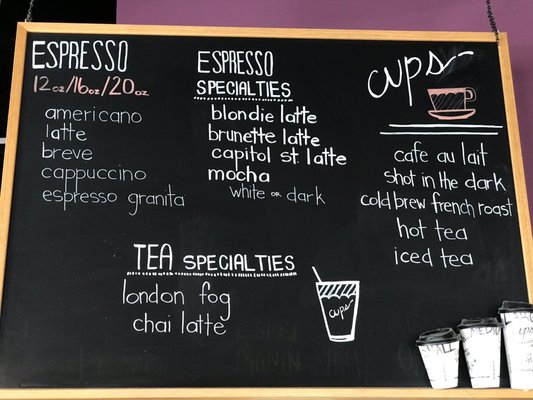 ESPRESSO
12oz/16oz/20oz
americano
latte
breve
cappuccino
espresso granita
ESPRESSO
SPECIALTIES
blondie latte
brunette latte
capitol st. latte
mocha
white or dark
cups
cafe au lait
shot in the dark
cold brew french roast
hot tea
iced tea
TEA SPECIALTIES
london fog
chai latte
cups
SMALL
MEDIUM